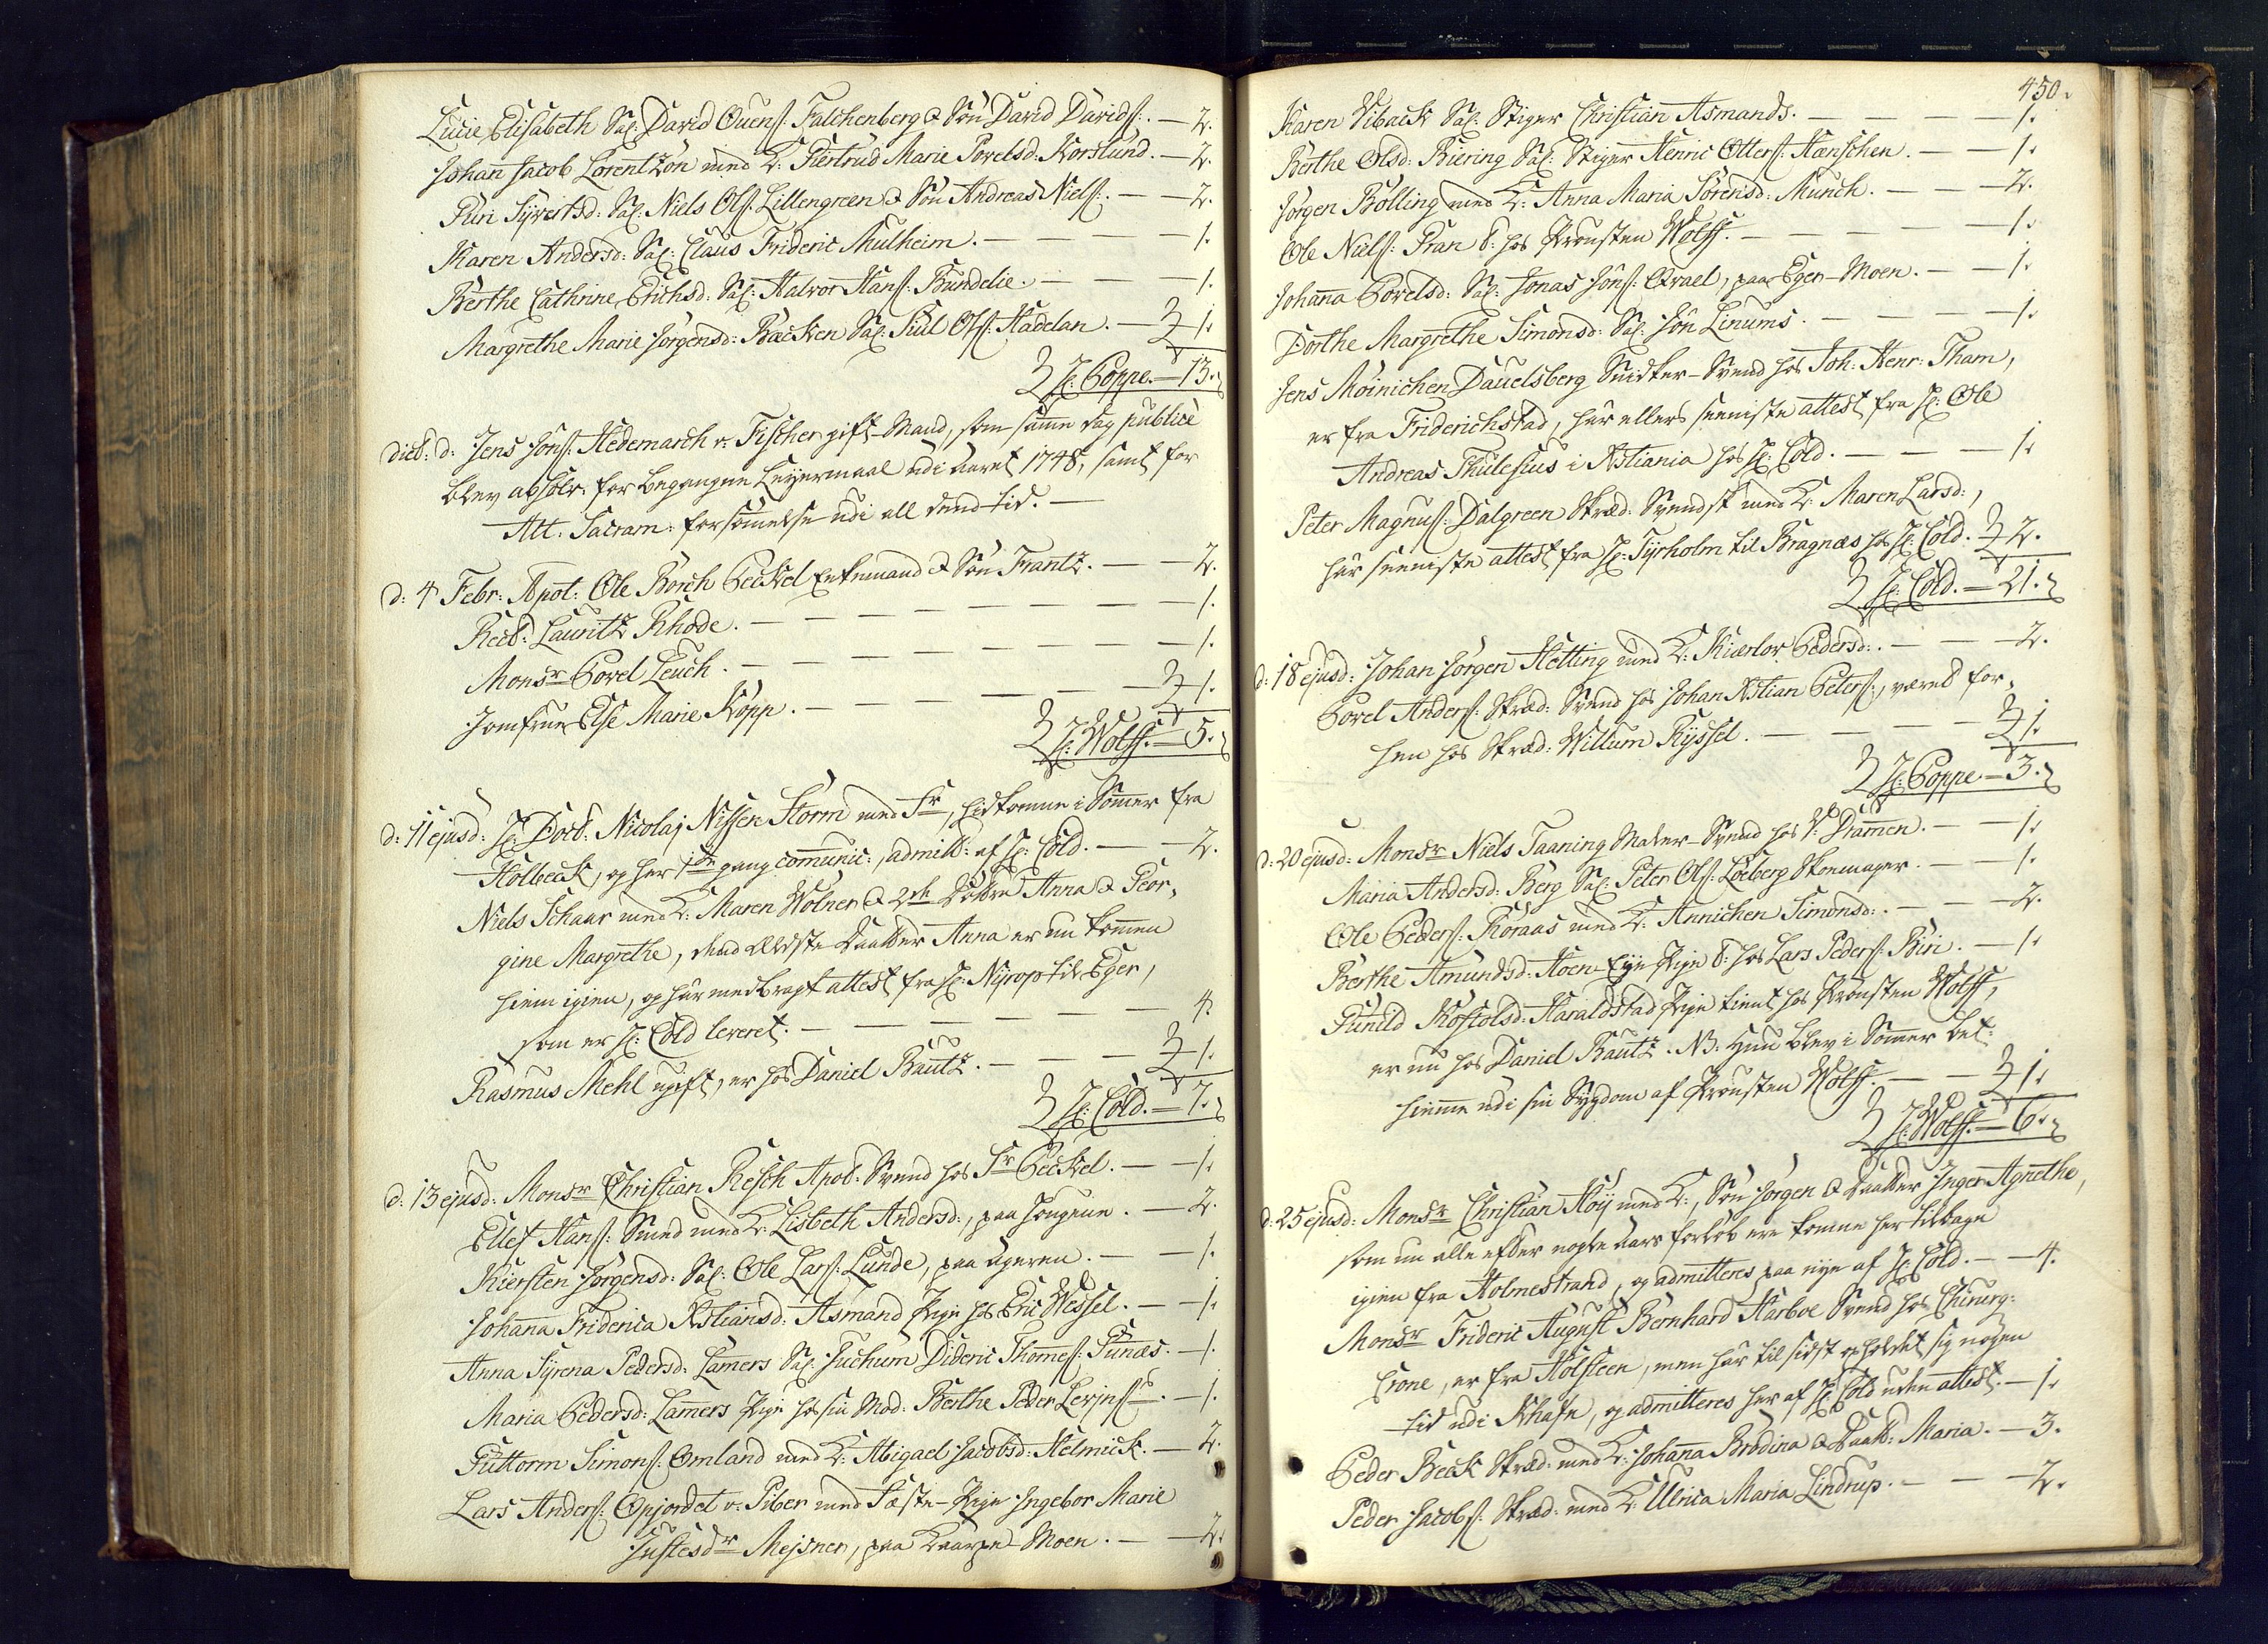 Lucie Elisabeth Sal: David Ouens: Falchenberg & Sön David Davids:. — 2.
Johan Jacob Lorentzon med K: Giertrud Marie Povelsd: Korslund. — 2.
Guri Syvertsd: Sal: Niels Ols: Lillengreen & Sön Andreas Niels:. — 2.
Karen Andersd: Sal: Claus Frideric Mulheim. — 1.
Berthe Cathrine Erichsd: Sal: Halvor Hans: Bundelie. — 1.
Margrethe Marie Jörgensd: Backen Sal: Siul Ols: Hadelan. — 1.
H: Poppe. — 13.
dict: d: Jens Jöns: Hedemarch v. Fischer gift-Mand, som samme dag publicè
blev absolv: for begangne Leyermaal udi aaret 1748, samt for
Alt. Sacram: forsömmelse udi all dend tid. —
d: 4 Febr: Apot: Ole Borch Peckel Enkemand & Sön Frantz. — 2.
Rect: Lauritz Rhode. — 1.
Monsr Povel Leuch. — 1.
Jomfrue Else Marie Kopp. — 1.
H: Wolff. — 5.
d: 11 ejusd: H: Doct: Nicolaj Nissen Storm med Fr, hidkomne i Sommer fra
Holbeck, og her 1ste gang communic:, admitt: af H: Cold. — 2.
Niels Schaar med K: Maren Wolner & 2de Döttre Anna & Geor-
gine Margrethe, dend Ældste Daatter Anna er nu kommen
hiem igien, og har medbragt attest fra H: Nyrop til Eger,
som er H: Cold leveret. — 4.
Rasmus Mehl ugift, er hos Daniel Bautz. — 1.
H: Cold. — 7.
d: 13 ejusd: Monsr Christian Resch Apot: Svend hos Sr Peckel. — 1.
Ellef Hans: Smed med K: Lisbeth Andersd:, paa Haugene. — 2.
Kiersten Jörgensd: Sal: Ole Lars: Lunde, paa Ageren. — 1.
Johanna Friderica Xstiansd: Asmand Pige hos Eric Wessel. — 1.
Anna Syrena Pedersd: Lamers Sal: Juchum Dideric Thomes: Funæs. — 1.
Maria Pedersd: Lamers Pige hos sin Mod: Berthe Peder Levins. — 1.
Guttorm Simons: Omland med K: Abigael Jacobsd: Helmick. — 2.
Lars Anders: Opjordet v. Piber med Fæste-Pige Ingebor Marie
Justesdr Mejsner, paa Kaarpe-Moen. — 2.
450.
Karen Viback Sal: Stiger Christian Asmands. — 1.
Berthe Olsd: Biering Sal: Stiger Henric Otters: Hænschen. — 1.
Jörgen Bölling med K: Anna Maria Sörensd: Munch. — 2.
Ole Niels: Gran t: hos Provsten Wolff. — 1.
Johanna Povelsd: Sal: Jonas Jöns: Qvael, paa Eger-Moen. — 1.
Dorthe Margrethe Simonsd: Sal: Jön Linums. — 1.
Jens Möinichen Dauelsberg Snidker-Svend hos Joh: Henr: Tham,
er fra Friderichstad, har ellers seeniste attest fra H: Ole
Andreas Thulesius i Xstiania hos H: Cold. — 1.
Peter Magnus: Dalgreen Skræd: Svendsk med K: Maren Larsd:,
har seeniste attest fra H: Tyrholm til Bragnæs hos H: Cold. 2.
H: Cold. — 21.
d: 18 ejusd: Johan Jörgen Hetting med K: Kierlov Pedersd:. — 2.
Povel Anders: Skræd: Svend hos Johan Xstian Peters:, været for-
hen hos Skræd: Willum Ryssel. — 1.
H: Poppe. — 3.
d: 20 ejusd: Monsr Niels Taaning Maler-Svend hos V: Drammen. — 1.
Maria Andersd: Berg Sal: Peter Ols: Löeberg Skomager. — 1.
Ole Peders: Roraas med K: Annichen Simonsd:. — 2.
Berthe Amundsd: Moen-Eye Pige t: hos Lars Peders: Biri. — 1.
Gunild Rostolsd: Haraldstad Pige tient hos Provsten Wolff,
er nu hos Daniel Bautz. NB. Hun blev i Sommer bet:
hiemme udi sin Sygdom af Provsten Wolff. — 1.
H: Wolff. — 6.
d: 25 ejusd: Monsr Christian Höy med K:, Sön Jörgen & Daatter Inger Agnethe,
som nu alle efter nogle aars forlöb ere komne her tilbage
igien fra Holmestrand, og admitteres paa nye af H: Cold. — 4.
Monsr Frideric August Bernhard Harboe Svend hos Chirurg:
Crone, er fra Holsteen, men har til sidst opholdet sig nogen
tid udi Khafn, og admitteres her af H: Cold uden attest. — 1.
Peder Beck Skræd: med K: Johanna Brodina & Daatt: Maria. — 3.
Peder Jacobs: Skræd: med K: Ulrica Maria Lindrup. — 2.